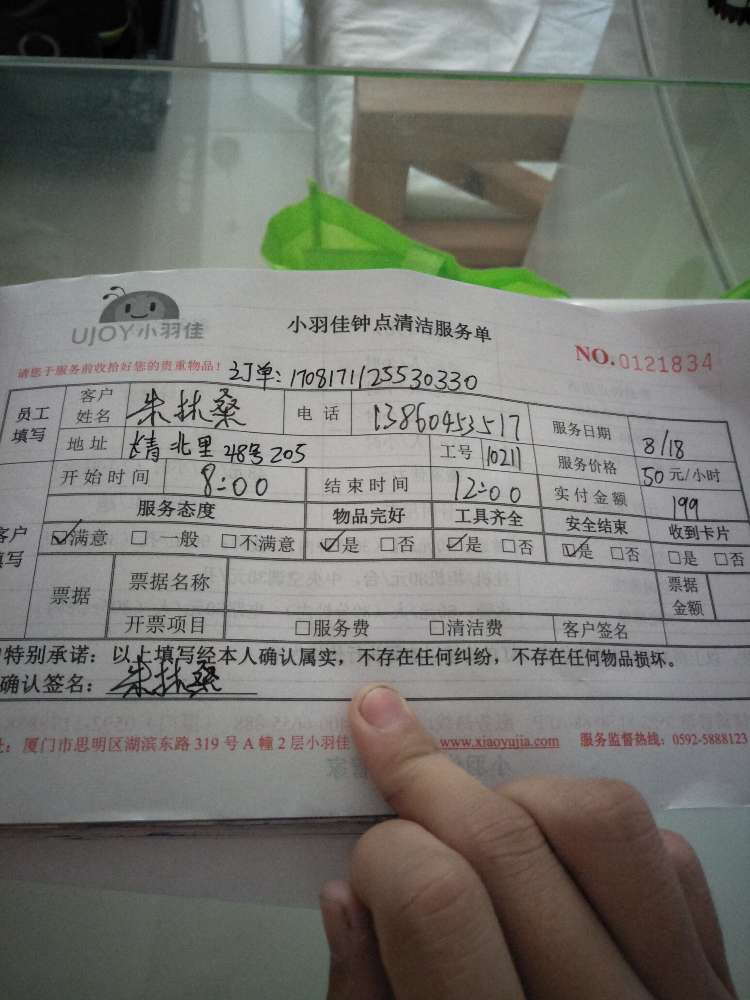 UJOY小羽佳
小羽佳钟点清洁服务单
NO.0121834
请您于服务前收拾好您的贵重物品! 订单:1708171125530330
员工填写 客户姓名 朱抹桑 电话 13860453517 服务日期 8/18
地址 长青北里48号205 工号 10211 服务价格 50元/小时
开始时间 8:00 结束时间 12:00 实付金额 199
客户填写 服务态度 物品完好 工具齐全 安全结束 收到卡片
☑满意 □一般 □不满意 ☑是 □否 ☑是 □否 ☑是 □否 □是 □否
票据 票据名称 票据金额
开票项目 □服务费 □清洁费 客户签名
特别承诺:以上填写经本人确认属实,不存在任何纠纷,不存在任何物品损坏。
确认签名:朱抹桑
厦门市思明区湖滨东路319号A幢2层小羽佳 www.xiaoyujia.com 服务监督热线:0592-5888123